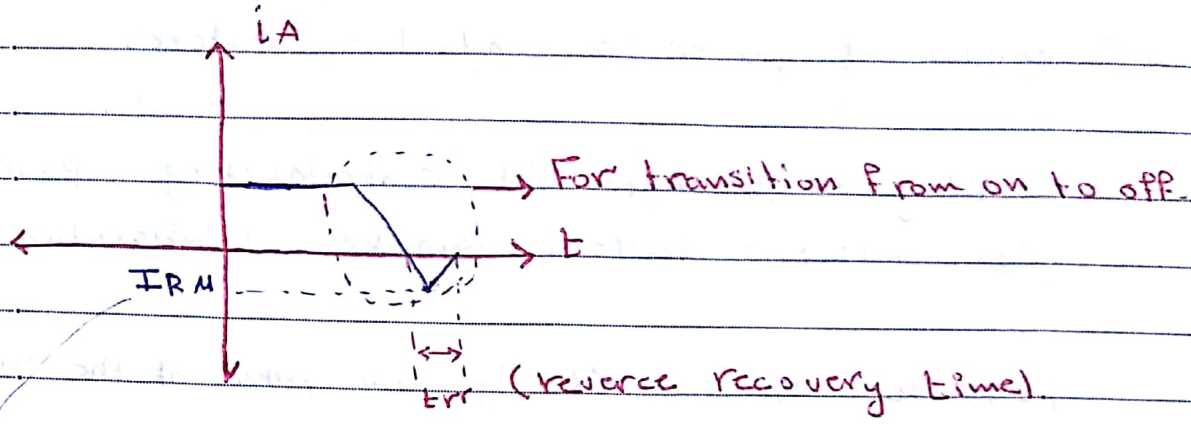 iA
For transition from on to off.
t
IRM
trr (reverce recovery time).